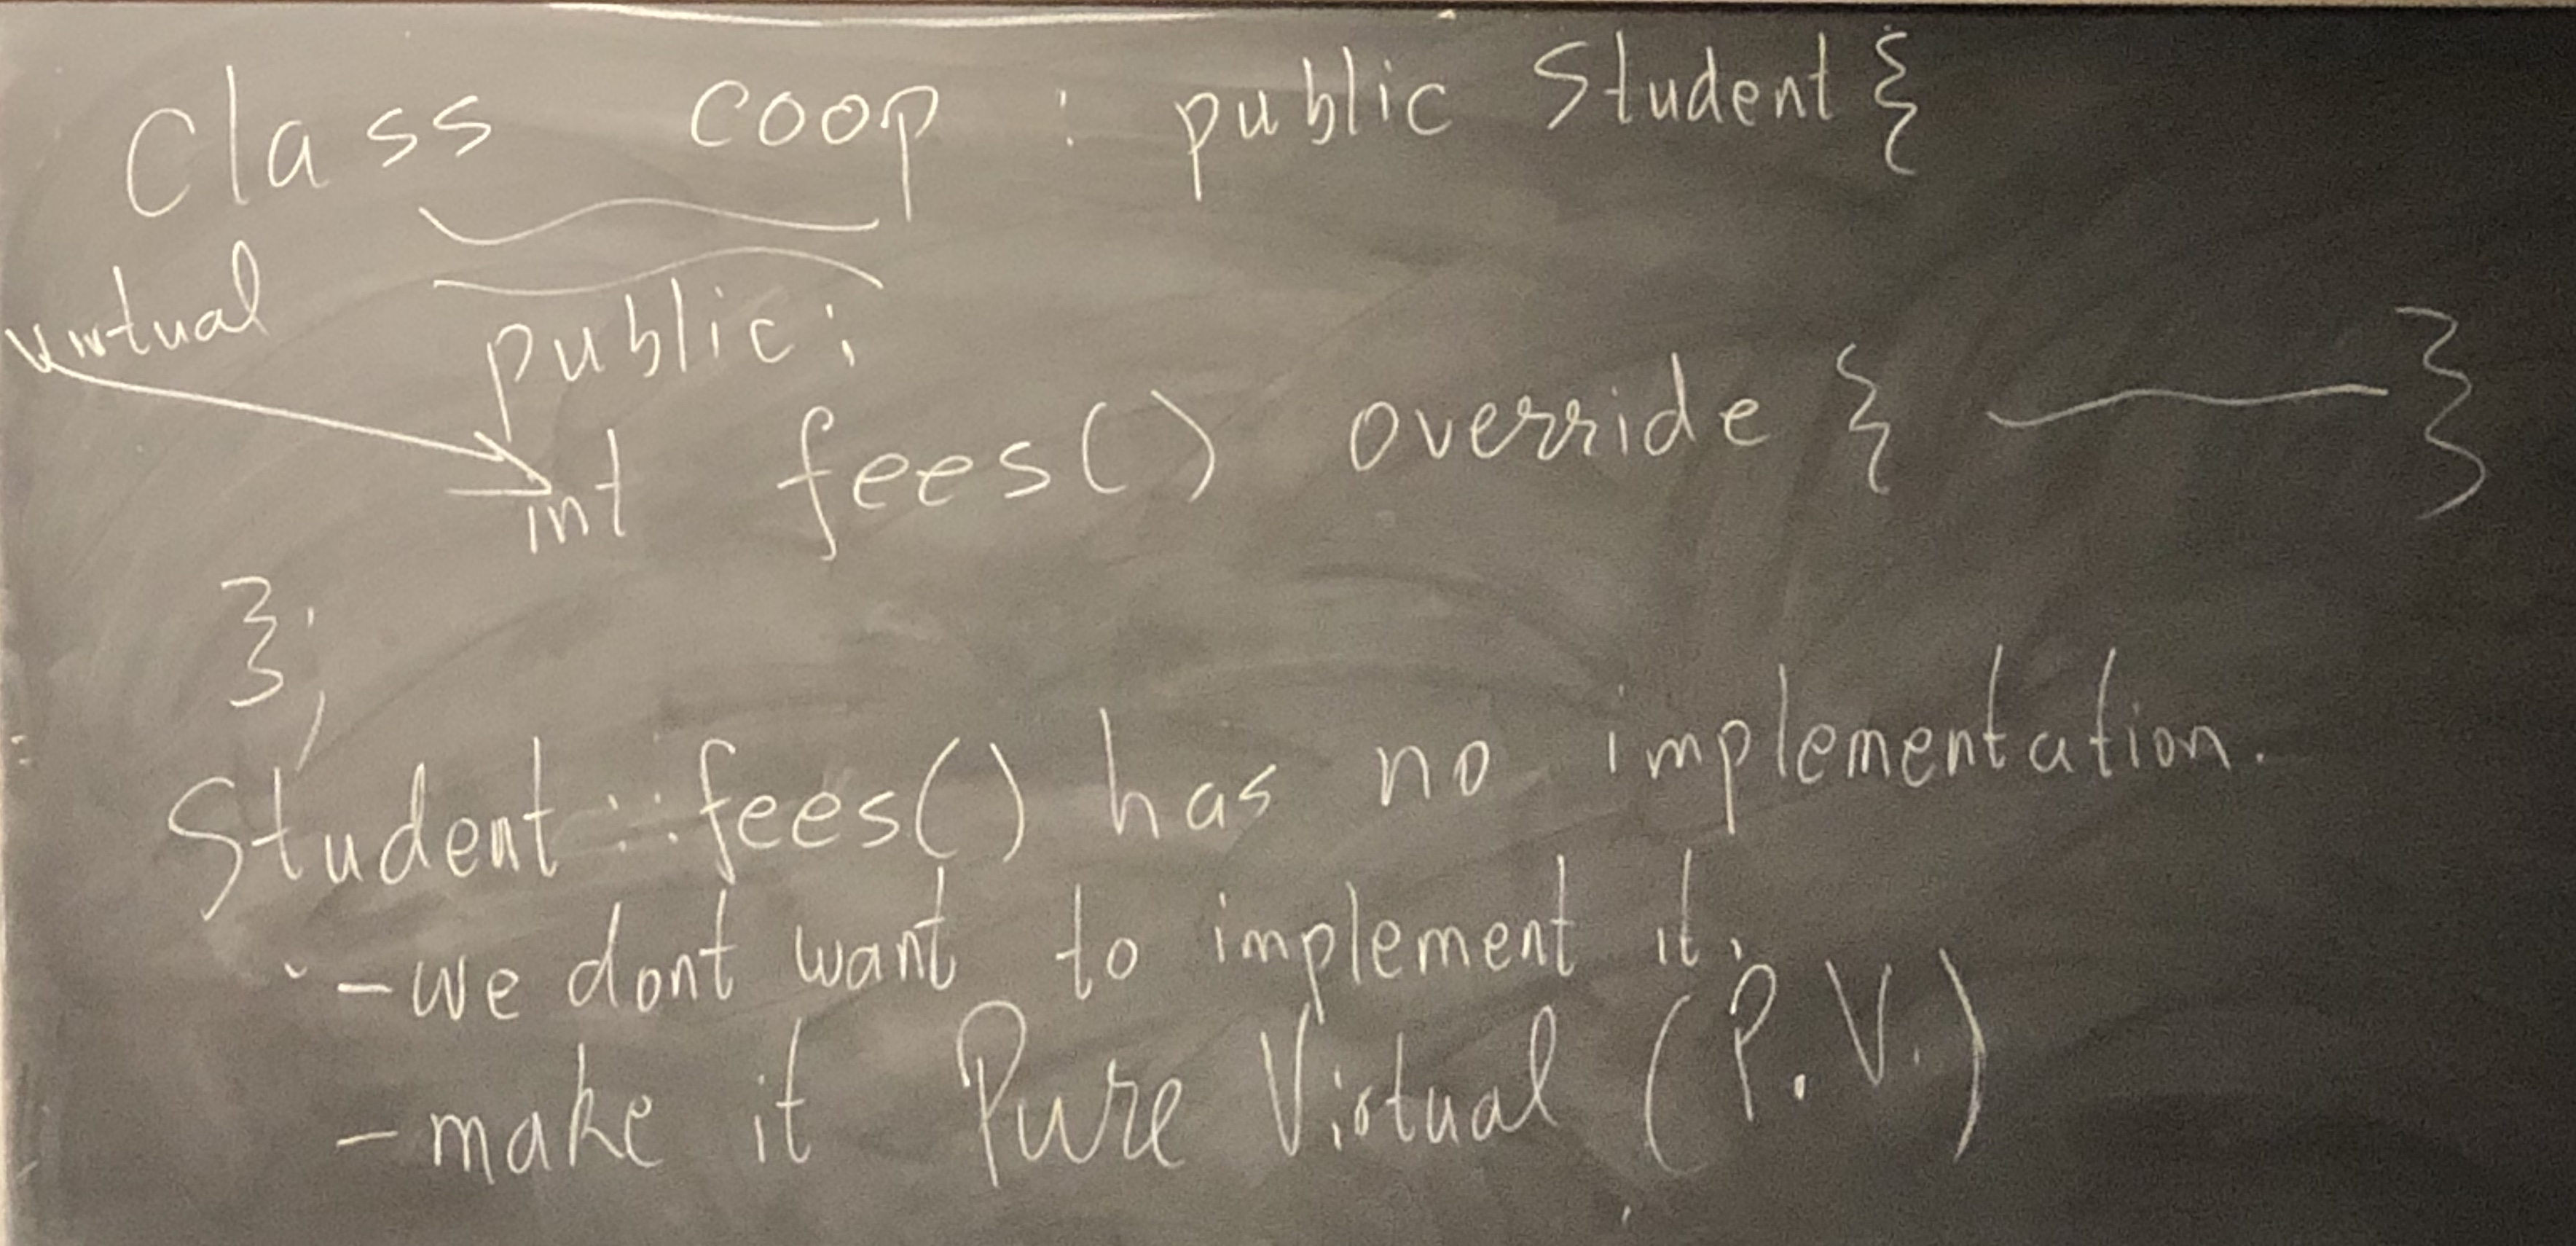 Class coop : public Student {
virtual
public:
int fees() override { }
};
Student::fees() has no implementation.
- we dont want to implement it.
- make it Pure Virtual (P.V.)